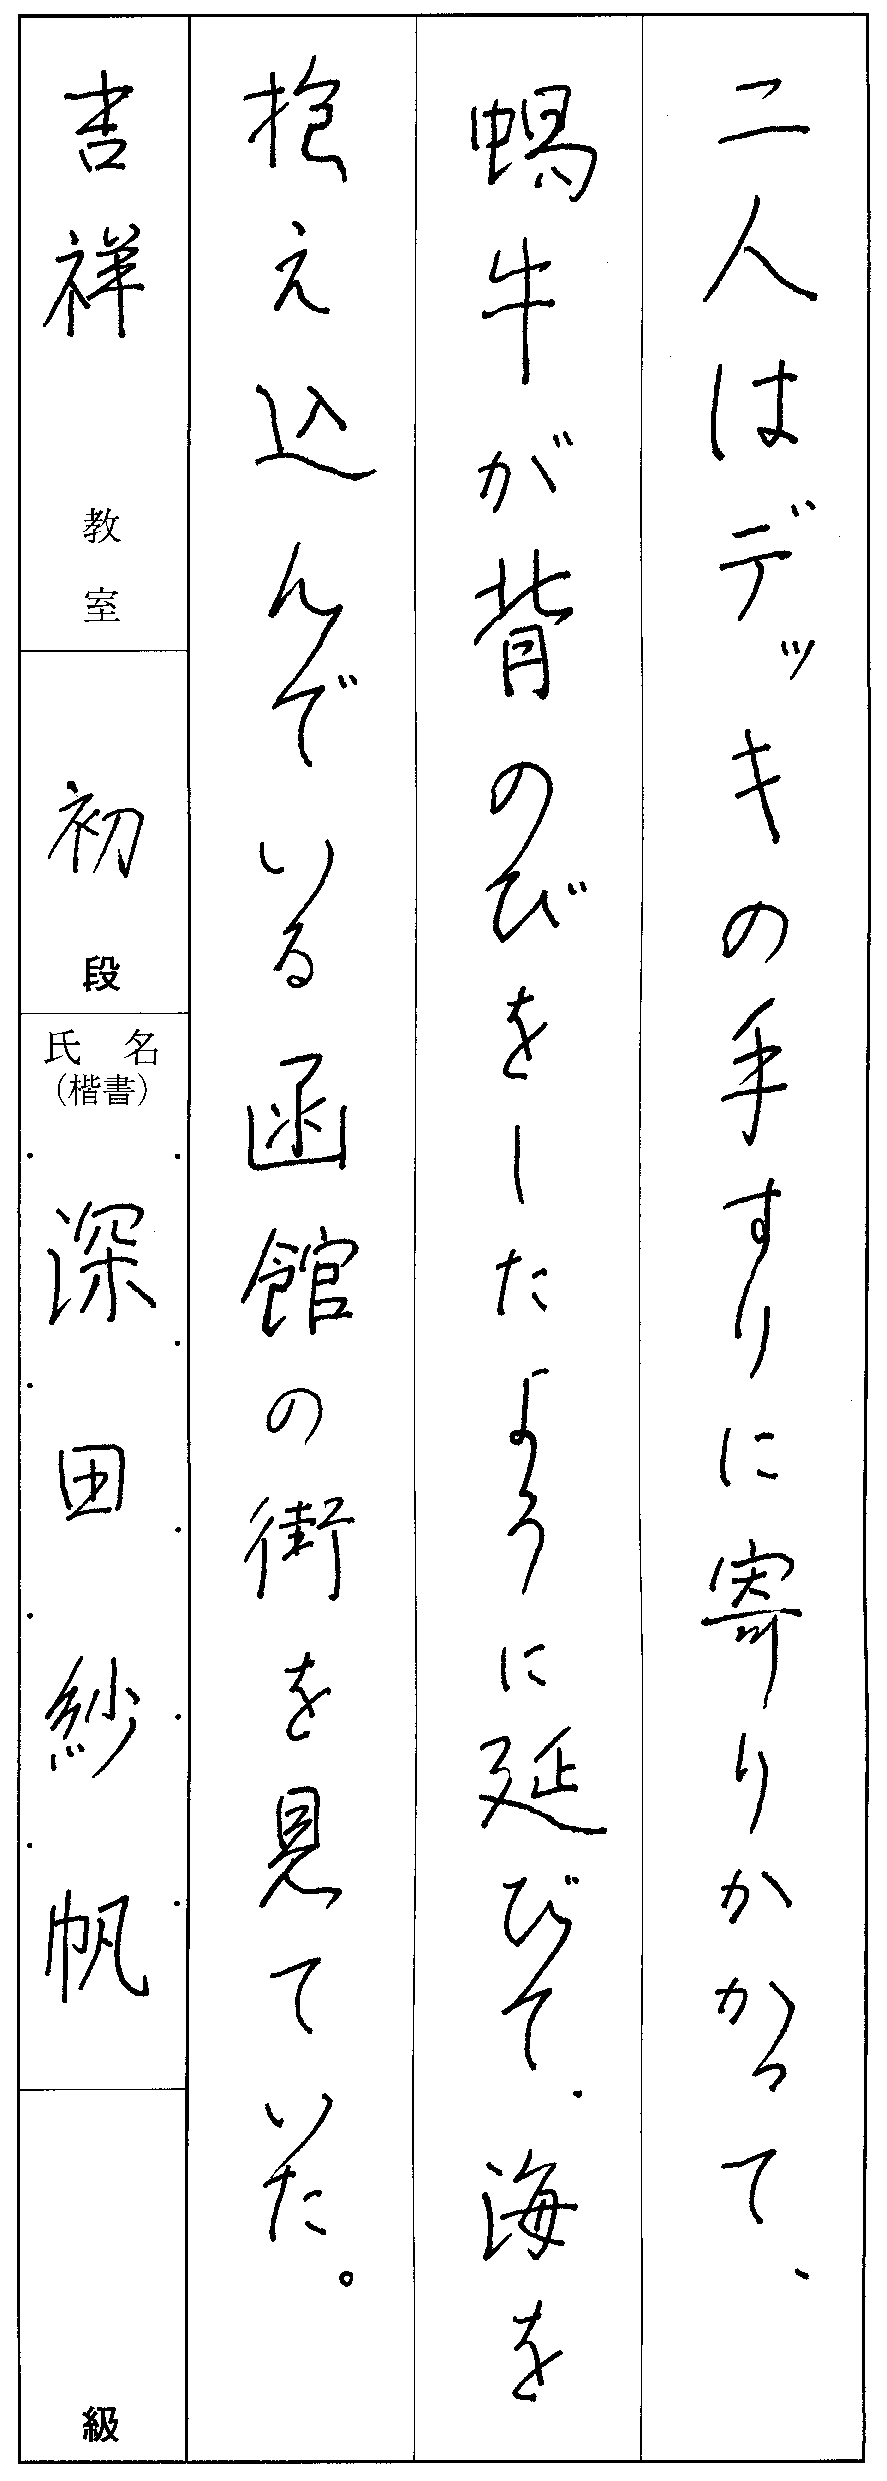 二人はデッキの手すりに寄りかかって、
蝸牛が背のびをしたように延びて、海を
抱え込んでいる函館の街を見ていた。
吉祥 教室
初 段
氏名
(楷書)
深田紗帆
級